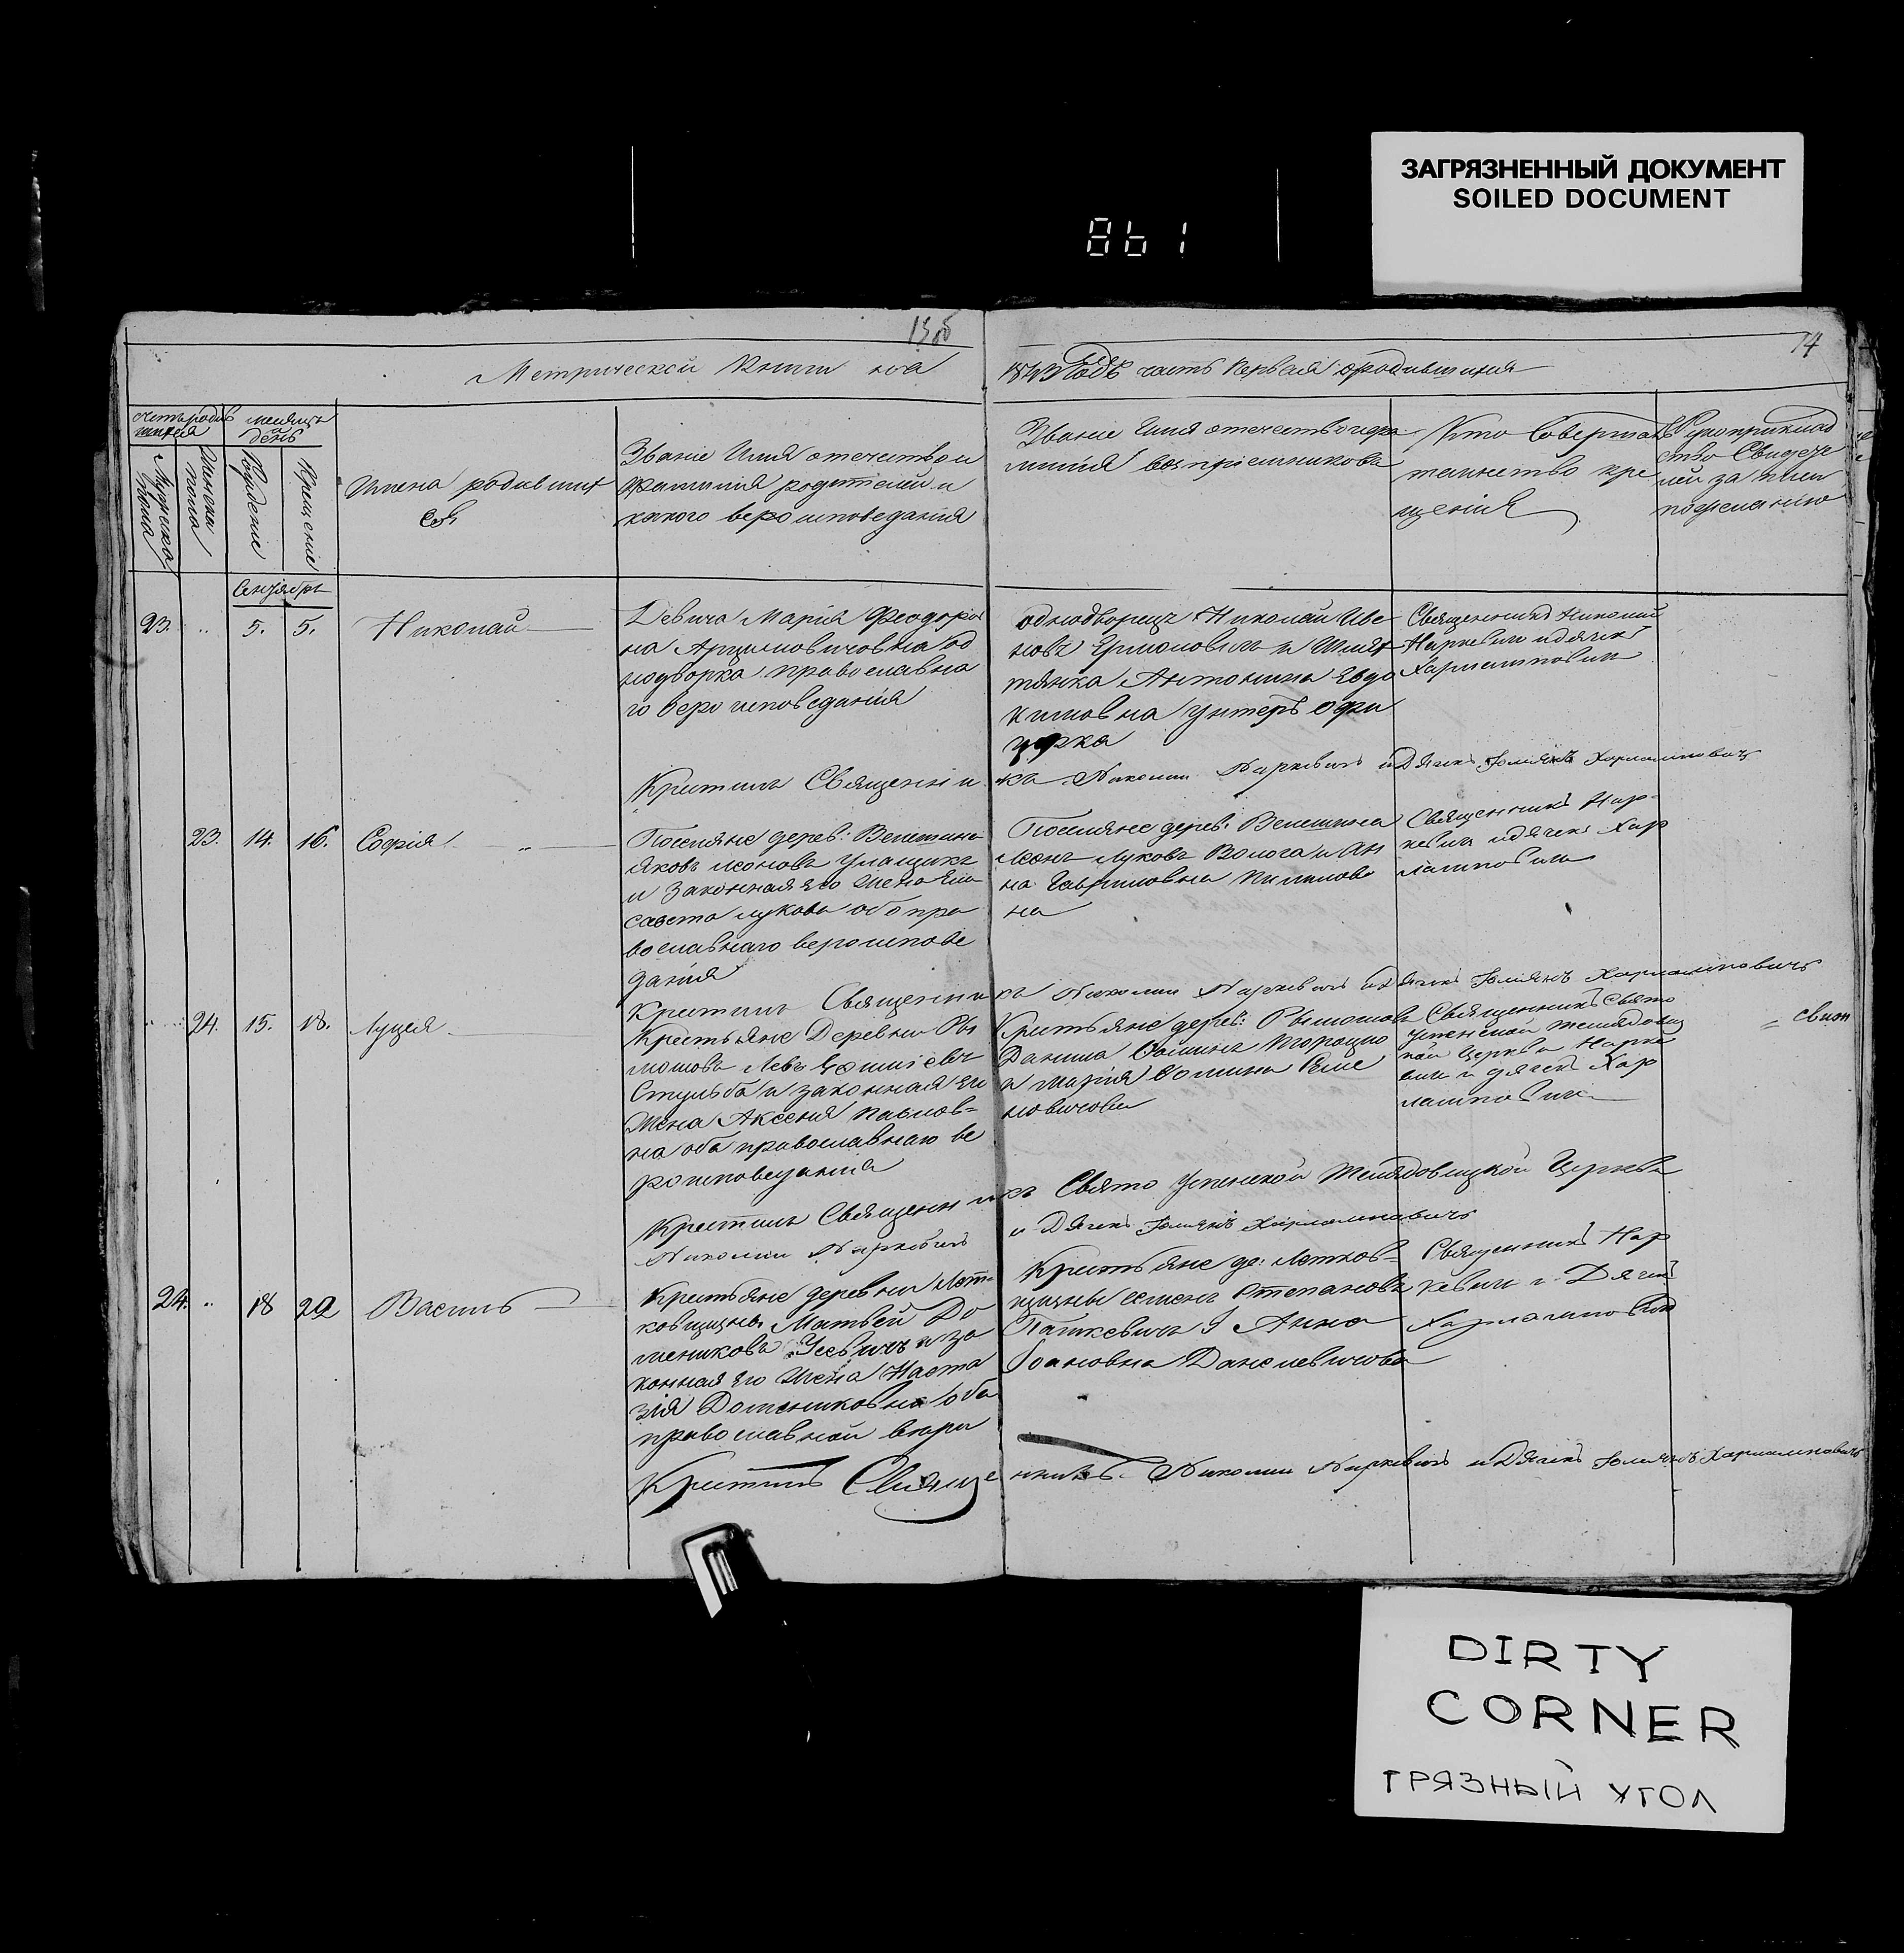 ЗАГРЯЗНЕННЫЙ ДОКУМЕНТ
SOILED DOCUMENT
861
14
Метрической Книги на
1843 Годъ часть первая о родившихся
месяцъ
и
день
Мужеска
пола
Женска
пола
Рождение
Крещение
Имена родивших
ся
Званіе Имя отечество и
Фамилія родителей и
какого вероисповеданія
Званіе Имя отечество и фа
милія воспріемниковъ
Кто Совершалъ
таинство кре
щенія
Рукоприклад
ство Свидет
лей за тим
по желанію
Сентябрь
23. " 5. 5. Николай
Девица Марія Феодоров
на Арцимовичовна од
нодворка православна
го вероисповеданія
однодворецъ Николай Ива
новъ Ермоловичъ и Шлях
тянка Антонина Евдо
кимовна унтеръ офи
церка
Священникъ Николай
Наркевич и дячекъ
Харлампович
Крестилъ Священникъ Николай Наркевичъ и Дячекъ Іоліянъ Харламповичъ
23. 14. 16. Софія
Поселяне дерев:
Яковъ леоновъ
и Законная его Жена Ели
савета лукова оба пра
вославнаго вероиспове
данія
Поселяне дерев:
Леонъ Луковъ Волога и Ан
на Гавриловна
на
Священникъ Нар
кевич и дячекъ Хар
лампович
Крестилъ Священникъ Николай Наркевичъ и Дячекъ Іоліянъ Харламповичъ
24. 15. 18. Луцея
Крестьяне Деревни Ры
мошова Лев
Стульба и законная его
Жена Аксения Павлов=
на оба православнаго ве
роисповеданія
Крестьяне дерев: Рымошова
Данила
и Марія
новичова
Священникъ Свято
Успенской
кой Церкви Нарке
вич и дячекъ Хар
лампович
Крестилъ Священникъ Свято Успенской Телядовицкой Церкви
Николай Наркевичъ и Дячекъ Іоліянъ Харламповичъ
24. " 18 22 Василь
Крестьяне деревни Лот=
ковщины Матвей До
мениковъ Усевичъ и за
конная его Жена Наста
зія Доменикова оба
православной веры
Крестьяне де: Лотков=
щины семенъ Степановъ
Пашкевичъ и Анна
Іоановна Данелевичова
Священникъ Нар
кевич и Дячекъ
Харлампович
Крестилъ Священникъ Николай Наркевичъ и Дячекъ Іоліянъ Харламповичъ
DIRTY
CORNER
ГРЯЗНЫЙ УГОЛ